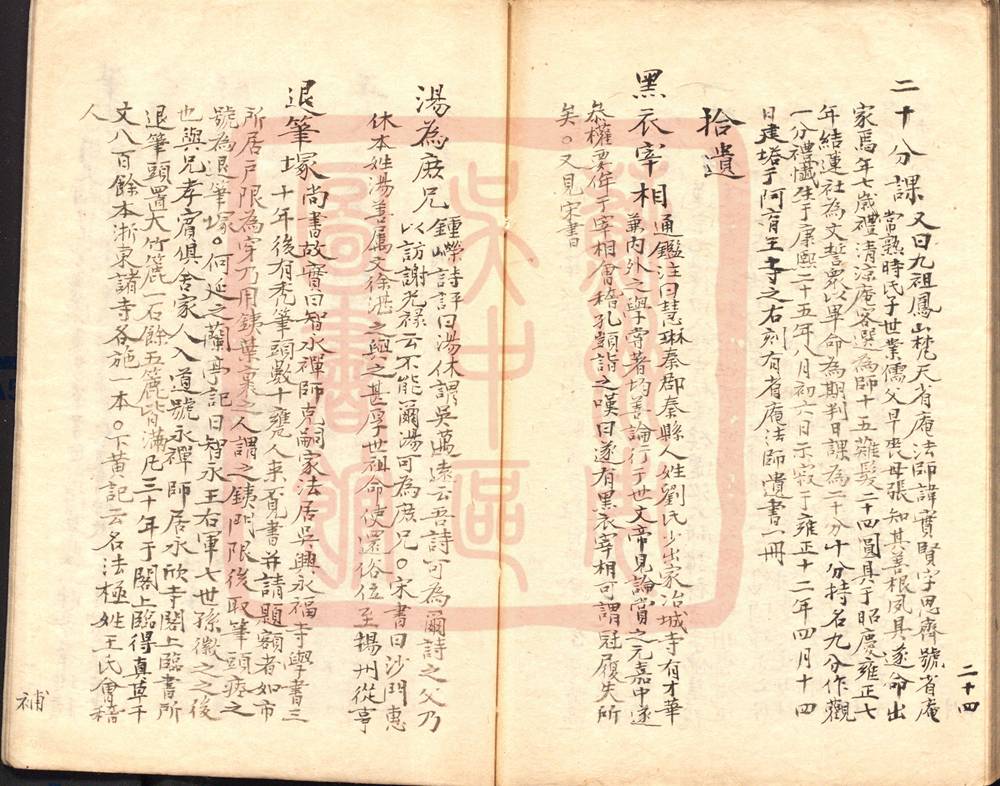 二十分課 又曰九祖鳳山梵天省庵法師諱實賢字思齊號省庵
常熟時氏子世業儒父早喪母張知其善根夙具遂命出
家焉年七歲禮清涼庵容選為師十五薙髮二十四圓具于昭慶雍正七
年結蓮社為文誓眾以畢命為期判日課為二十分十分持名九分作觀
一分禮懺生于康熙二十五年八月初六日示寂于雍正十二年四月十四
日建塔于阿育王寺之右刻有省庵法師遺書一冊
拾遺
黑衣宰相 通鑑注曰慧琳秦郡秦縣人姓劉氏少出家冶城寺有才華
兼內外之學嘗著均善論行于世文帝見論賞之元嘉中遂
叅權要侔于宰相會稽孔顗詣之嘆曰遂有黑衣宰相可謂冠履失所
矣。又見宋書
二十四
湯為庶兄 鍾嶸詩評曰湯休謂吳邁遠云吾詩可為爾詩之父乃
以訪謝光祿云不能爾湯可為庶兄。宋書曰沙門惠
休本姓湯善屬文徐湛之與之甚厚世祖命使還俗位至揚州從事
退筆塚 尚書故實曰智永禪師克嗣家法居吳興永福寺學書三
十年後有禿筆頭數十甕人來覓書并請題額者如市
所居戶限為穿乃用鐵葉裹之人謂之鐵門限後取筆頭瘞之
號為退筆塚。何延之蘭亭記曰智永王右軍七世孫徽之之後
也與兄孝賓俱舍家人入道號永禪師居永欣寺閣上臨書所
退筆頭置大竹簏一石餘五簏皆滿凡三十年于閣上臨得真草千
文八百餘本浙東諸寺各施一本。下黃記云名法極姓王氏會稽
人
補